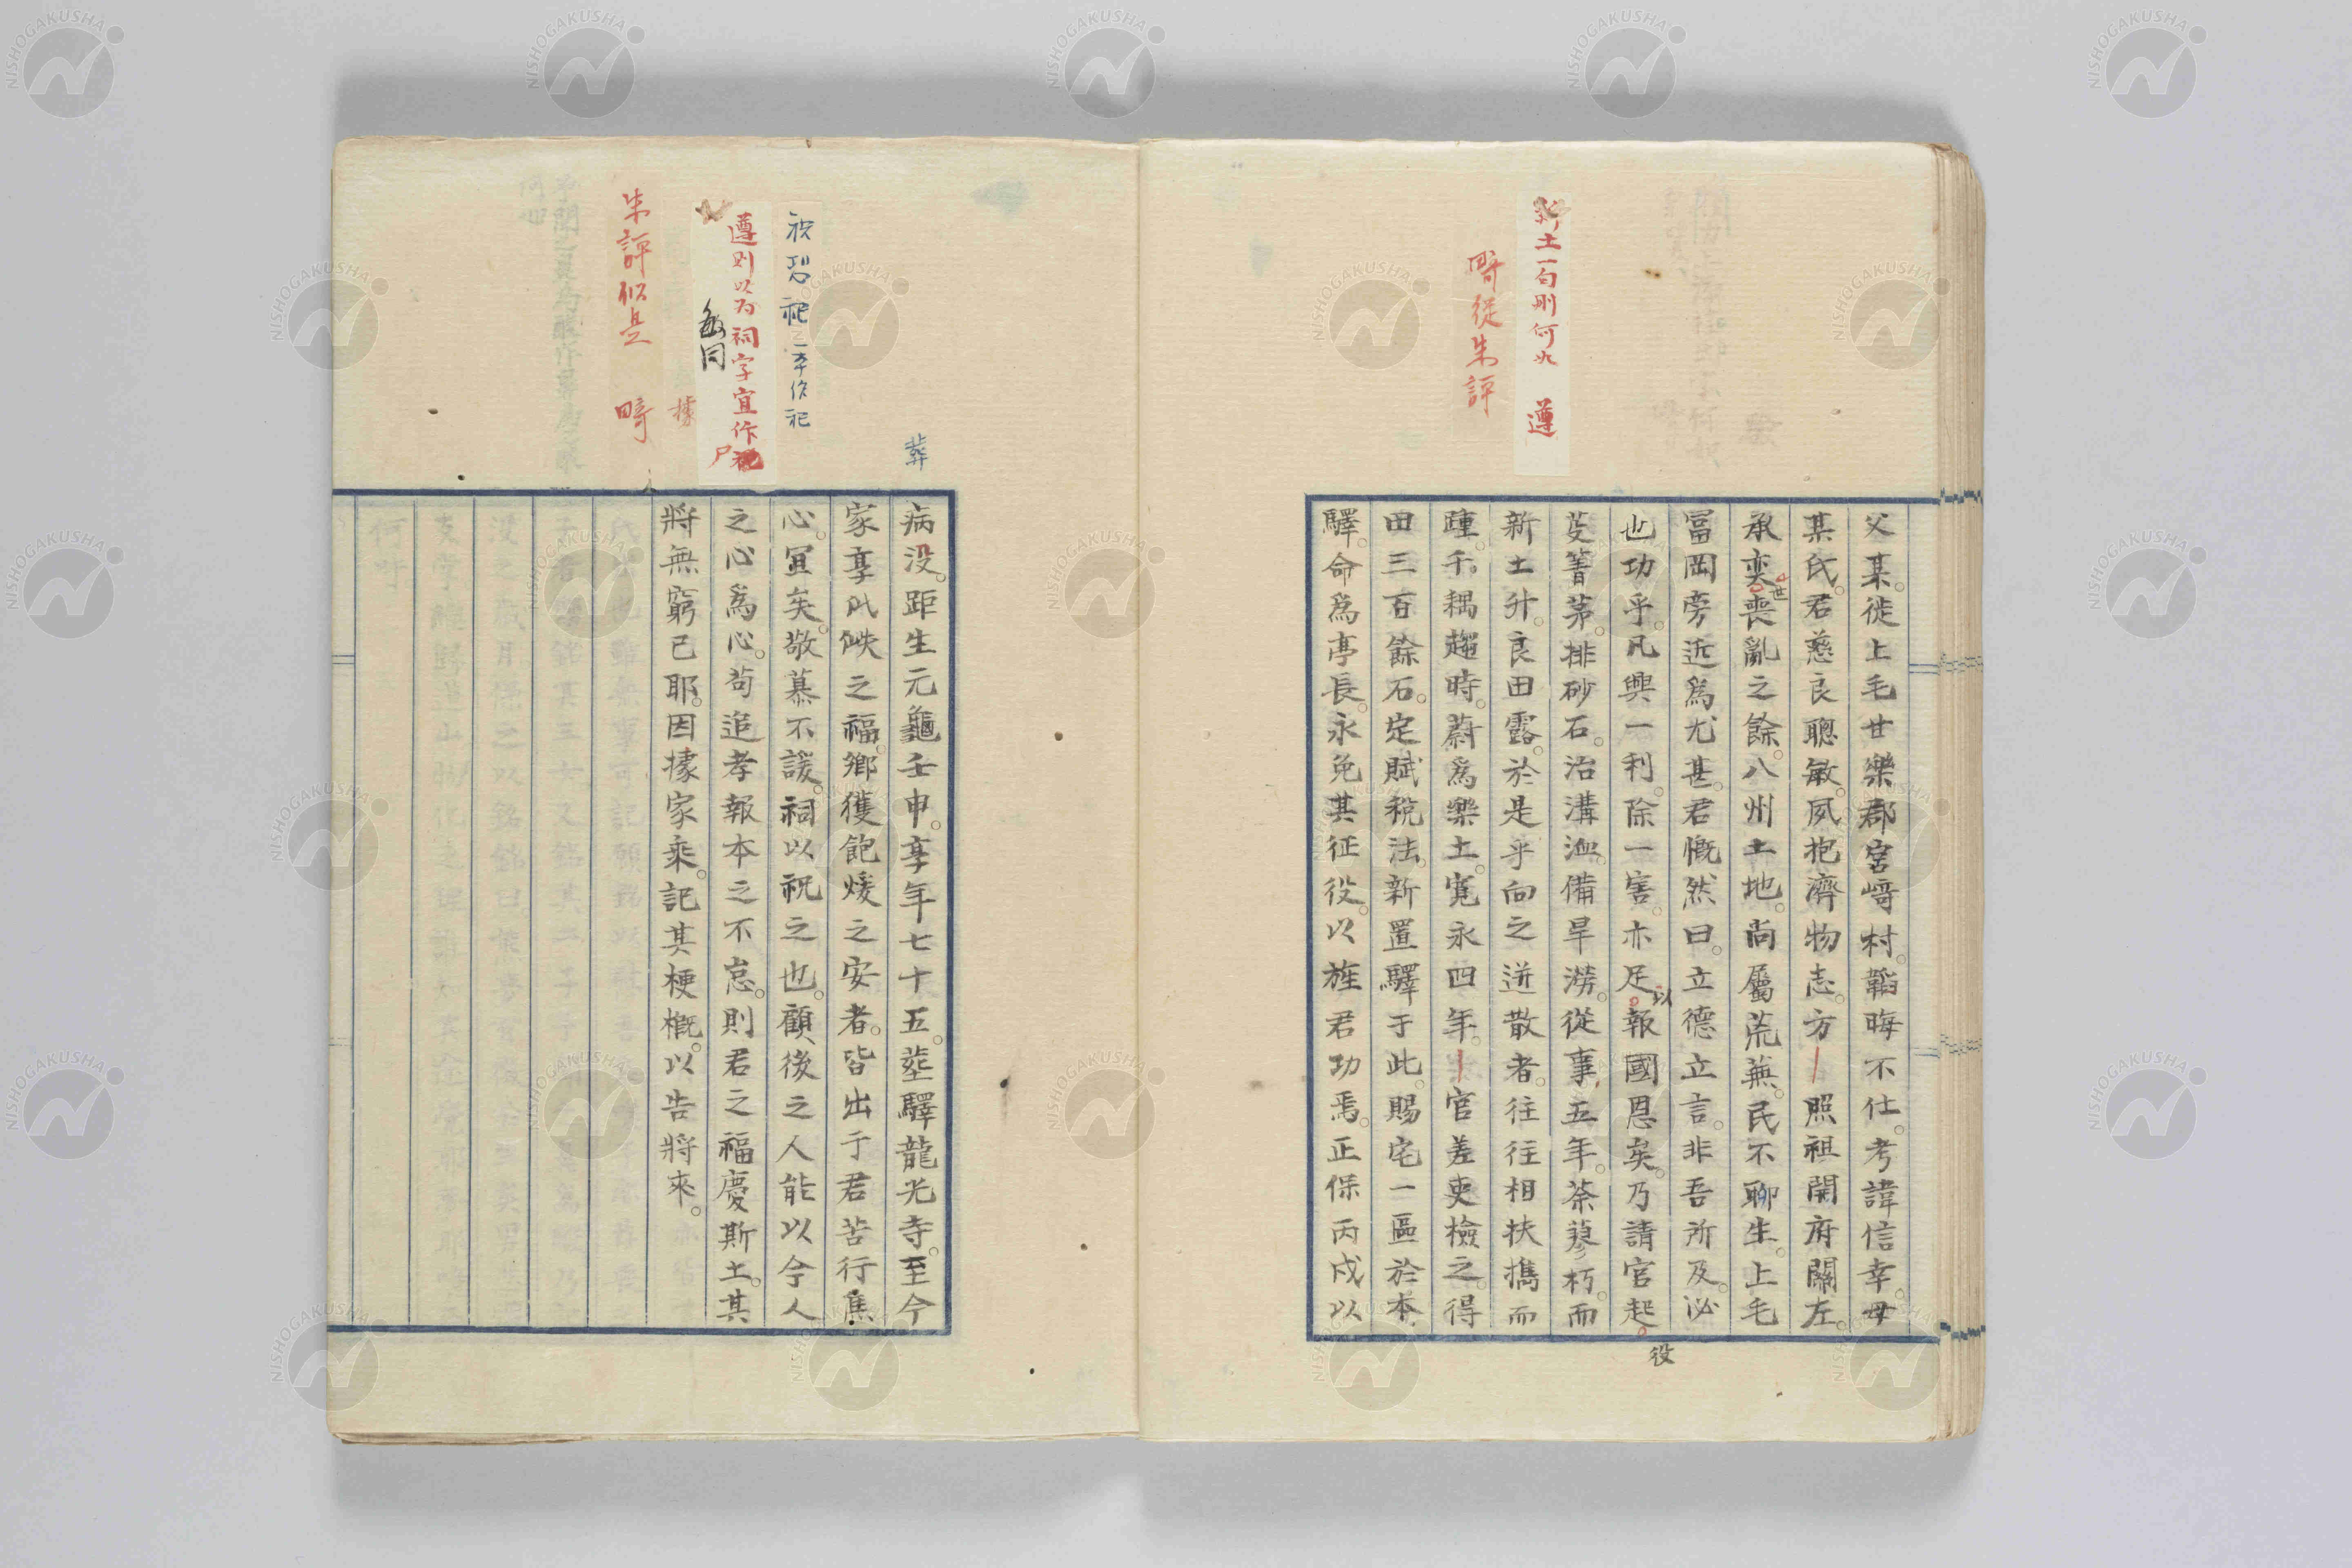 新土一句刪何如 遵
畸從朱評
父某。徙上毛甘樂郡宮﨑村。韜晦不仕。考諱信幸。母
某氏。君慈良聰敏。夙抱濟物志。方照祖開府關左。
承奕世喪亂之餘。八州土地。尚屬荒蕪。民不聊生。上毛
冨岡旁近爲尤甚。君慨然曰。立德立言。非吾所及。必
也功乎。凡興一利。除一害。亦足以報國恩矣。乃請官起役
芟菁茅。排砂石。治溝洫。備旱澇。從事五年。荼蓼朽。而
新土升。良田露。於是乎向之迸散者。往往相扶攜而
踵。千耦趨時。蔚爲樂土。寬永四年。官差吏檢之。得
田三百餘石。定賦稅法。新置驛于此。賜宅一區於本
驛。命爲亭長。永免其征役。以旌君功焉。正保丙戍以
葬
祝恐祀
一本作祀
遵則以为祠字宜作尸
敏同
據
朱評似是 畸
病没。距生元龜壬申。享年七十五。塟驛龍光寺。至今
家享此佚之福。鄉獲飽煖之安者。皆出于君苦行焦
心。宜矣敬慕不諼。祠以祝之也。顧後之人能以今人
之心爲心。苟追孝報本之不怠。則君之福慶斯土。其
將無窮已耶。因據家乘。記其梗概。以告將來。